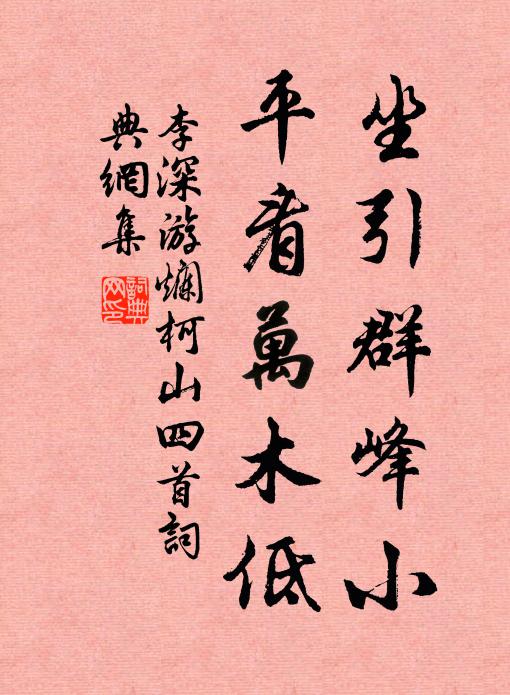 坐引群峰小
平看萬木低
李深游爛柯山四首詞
典網集
詞典網印